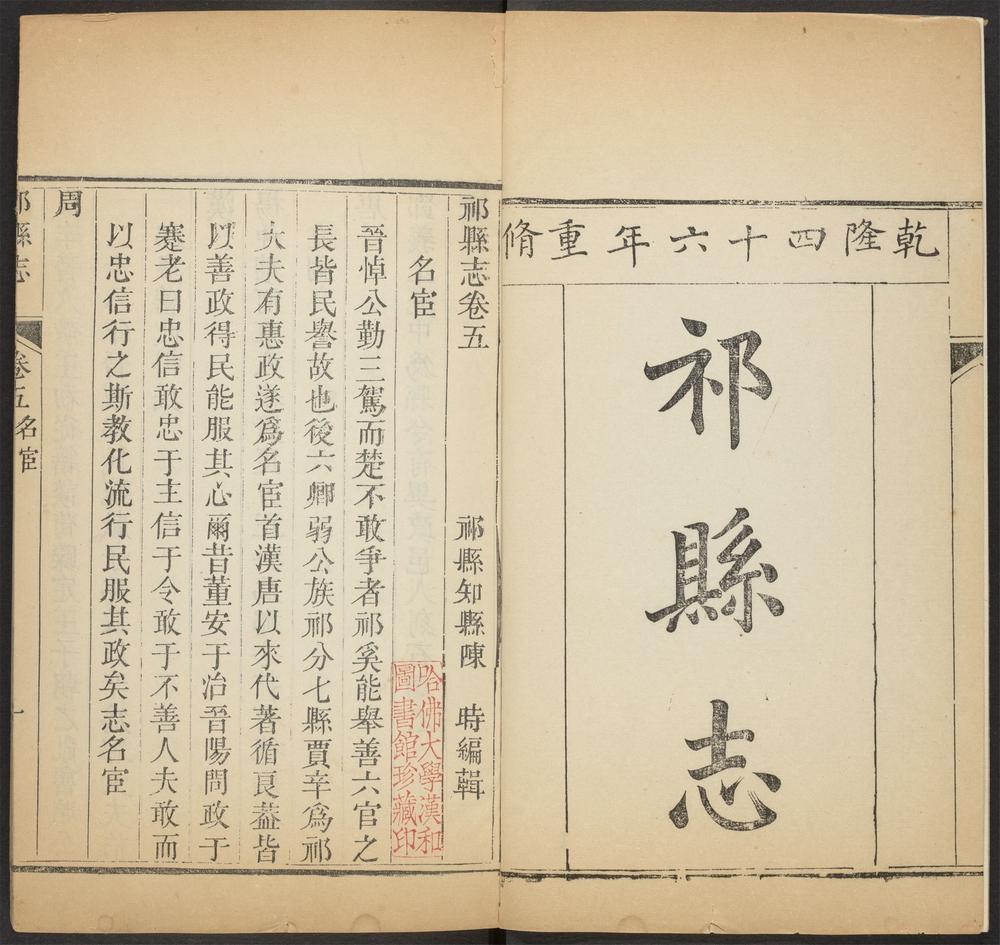 乾隆四十六年重脩
祁縣志
祁縣志卷五 祁縣知縣陳 時編輯
名宦
晉悼公勤三駕而楚不敢爭者祁奚能舉善六官之
長皆民譽故也後六卿弱公族祁分七縣賈辛爲祁
大夫有惠政遂爲名宦首漢唐以來代著循良葢皆
以善政得民能服其心爾昔董安于治晉陽問政于
蹇老曰忠信敢忠于主信于令敢于不善人夫敢而
以忠信行之斯教化流行民服其政矣志名宦
周
祁縣志 卷五名宦 一
哈佛大學漢和
圖書館珍藏印